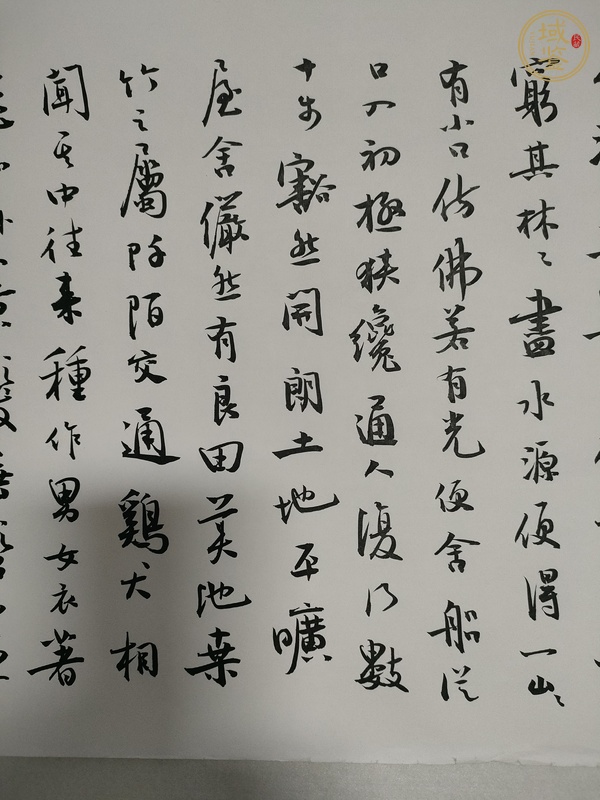 窮其林〻盡水源便得一山〻
有小口仿佛若有光便舍船從
口入初極狹纔通人復行數
十步豁然開朗土地平曠
屋舍儼然有良田美池桑
竹之屬阡陌交通鷄犬相
聞其中往來種作男女衣著